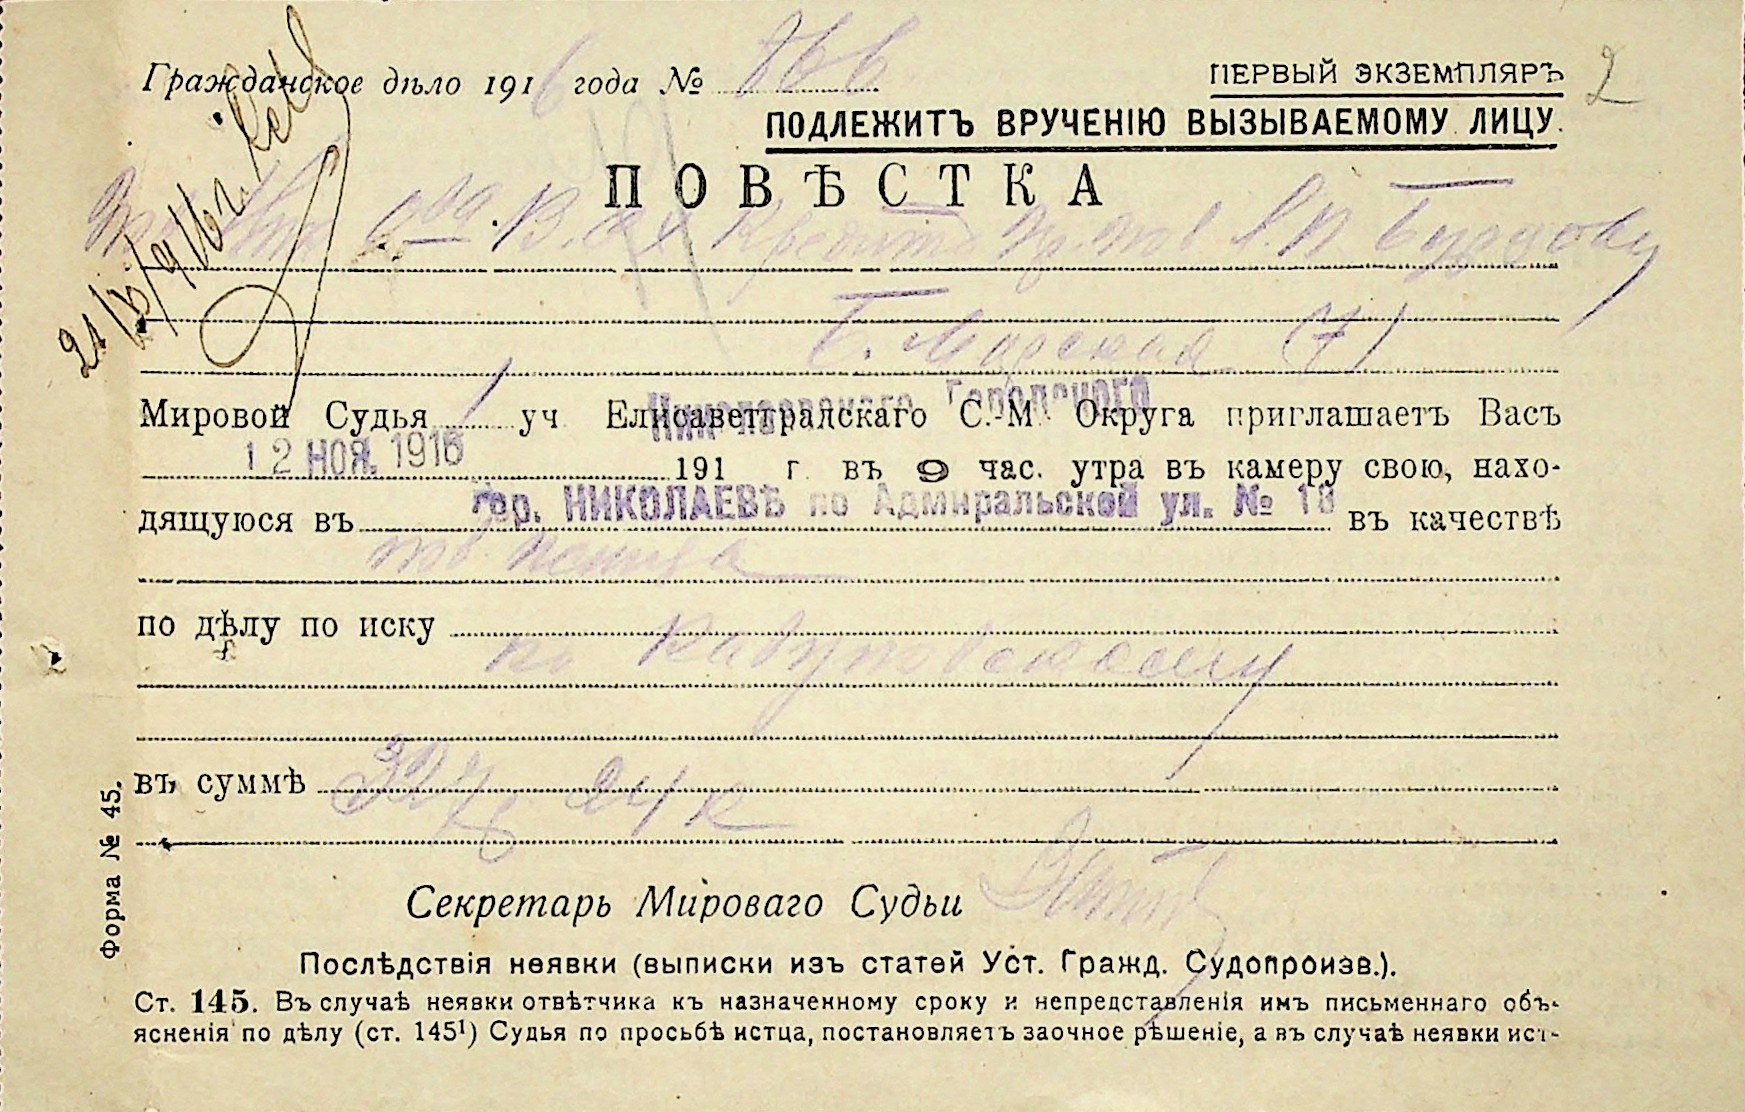 Гражданское дѣло 1916 года № 866
ПЕРВЫЙ ЭКЗЕМПЛЯРЪ 2
ПОДЛЕЖИТЪ ВРУЧЕНІЮ ВЫЗЫВАЕМОМУ ЛИЦУ.
ПОВѢСТКА
О-ва В. Кредита
Б. Морская
Мировой Судья 1 уч Елисаветградскаго С.-М Округа приглашаетъ Васъ
Николаевскаго Городского
12 НОЯ. 1916 191 г. въ 9 час. утра въ камеру свою, нахо-
дящуюся въ гор. НИКОЛАЕВѢ по Адмиральской ул. № 18 въ качествѣ
по дѣлу по иску
къ
въ суммѣ 327 р 24 к
Форма № 45.
Секретарь Мирового Судьи
Послѣдствія неявки (выписки изъ статей Уст. Гражд. Судопроизв.).
Ст. 145. Въ случаѣ неявки отвѣтчика къ назначенному сроку и непредставленія имъ письменнаго объ-
ясненія по дѣлу (ст. 145¹) Судья по просьбѣ истца, постановляетъ заочное рѣшеніе, а въ случаѣ неявки ист-